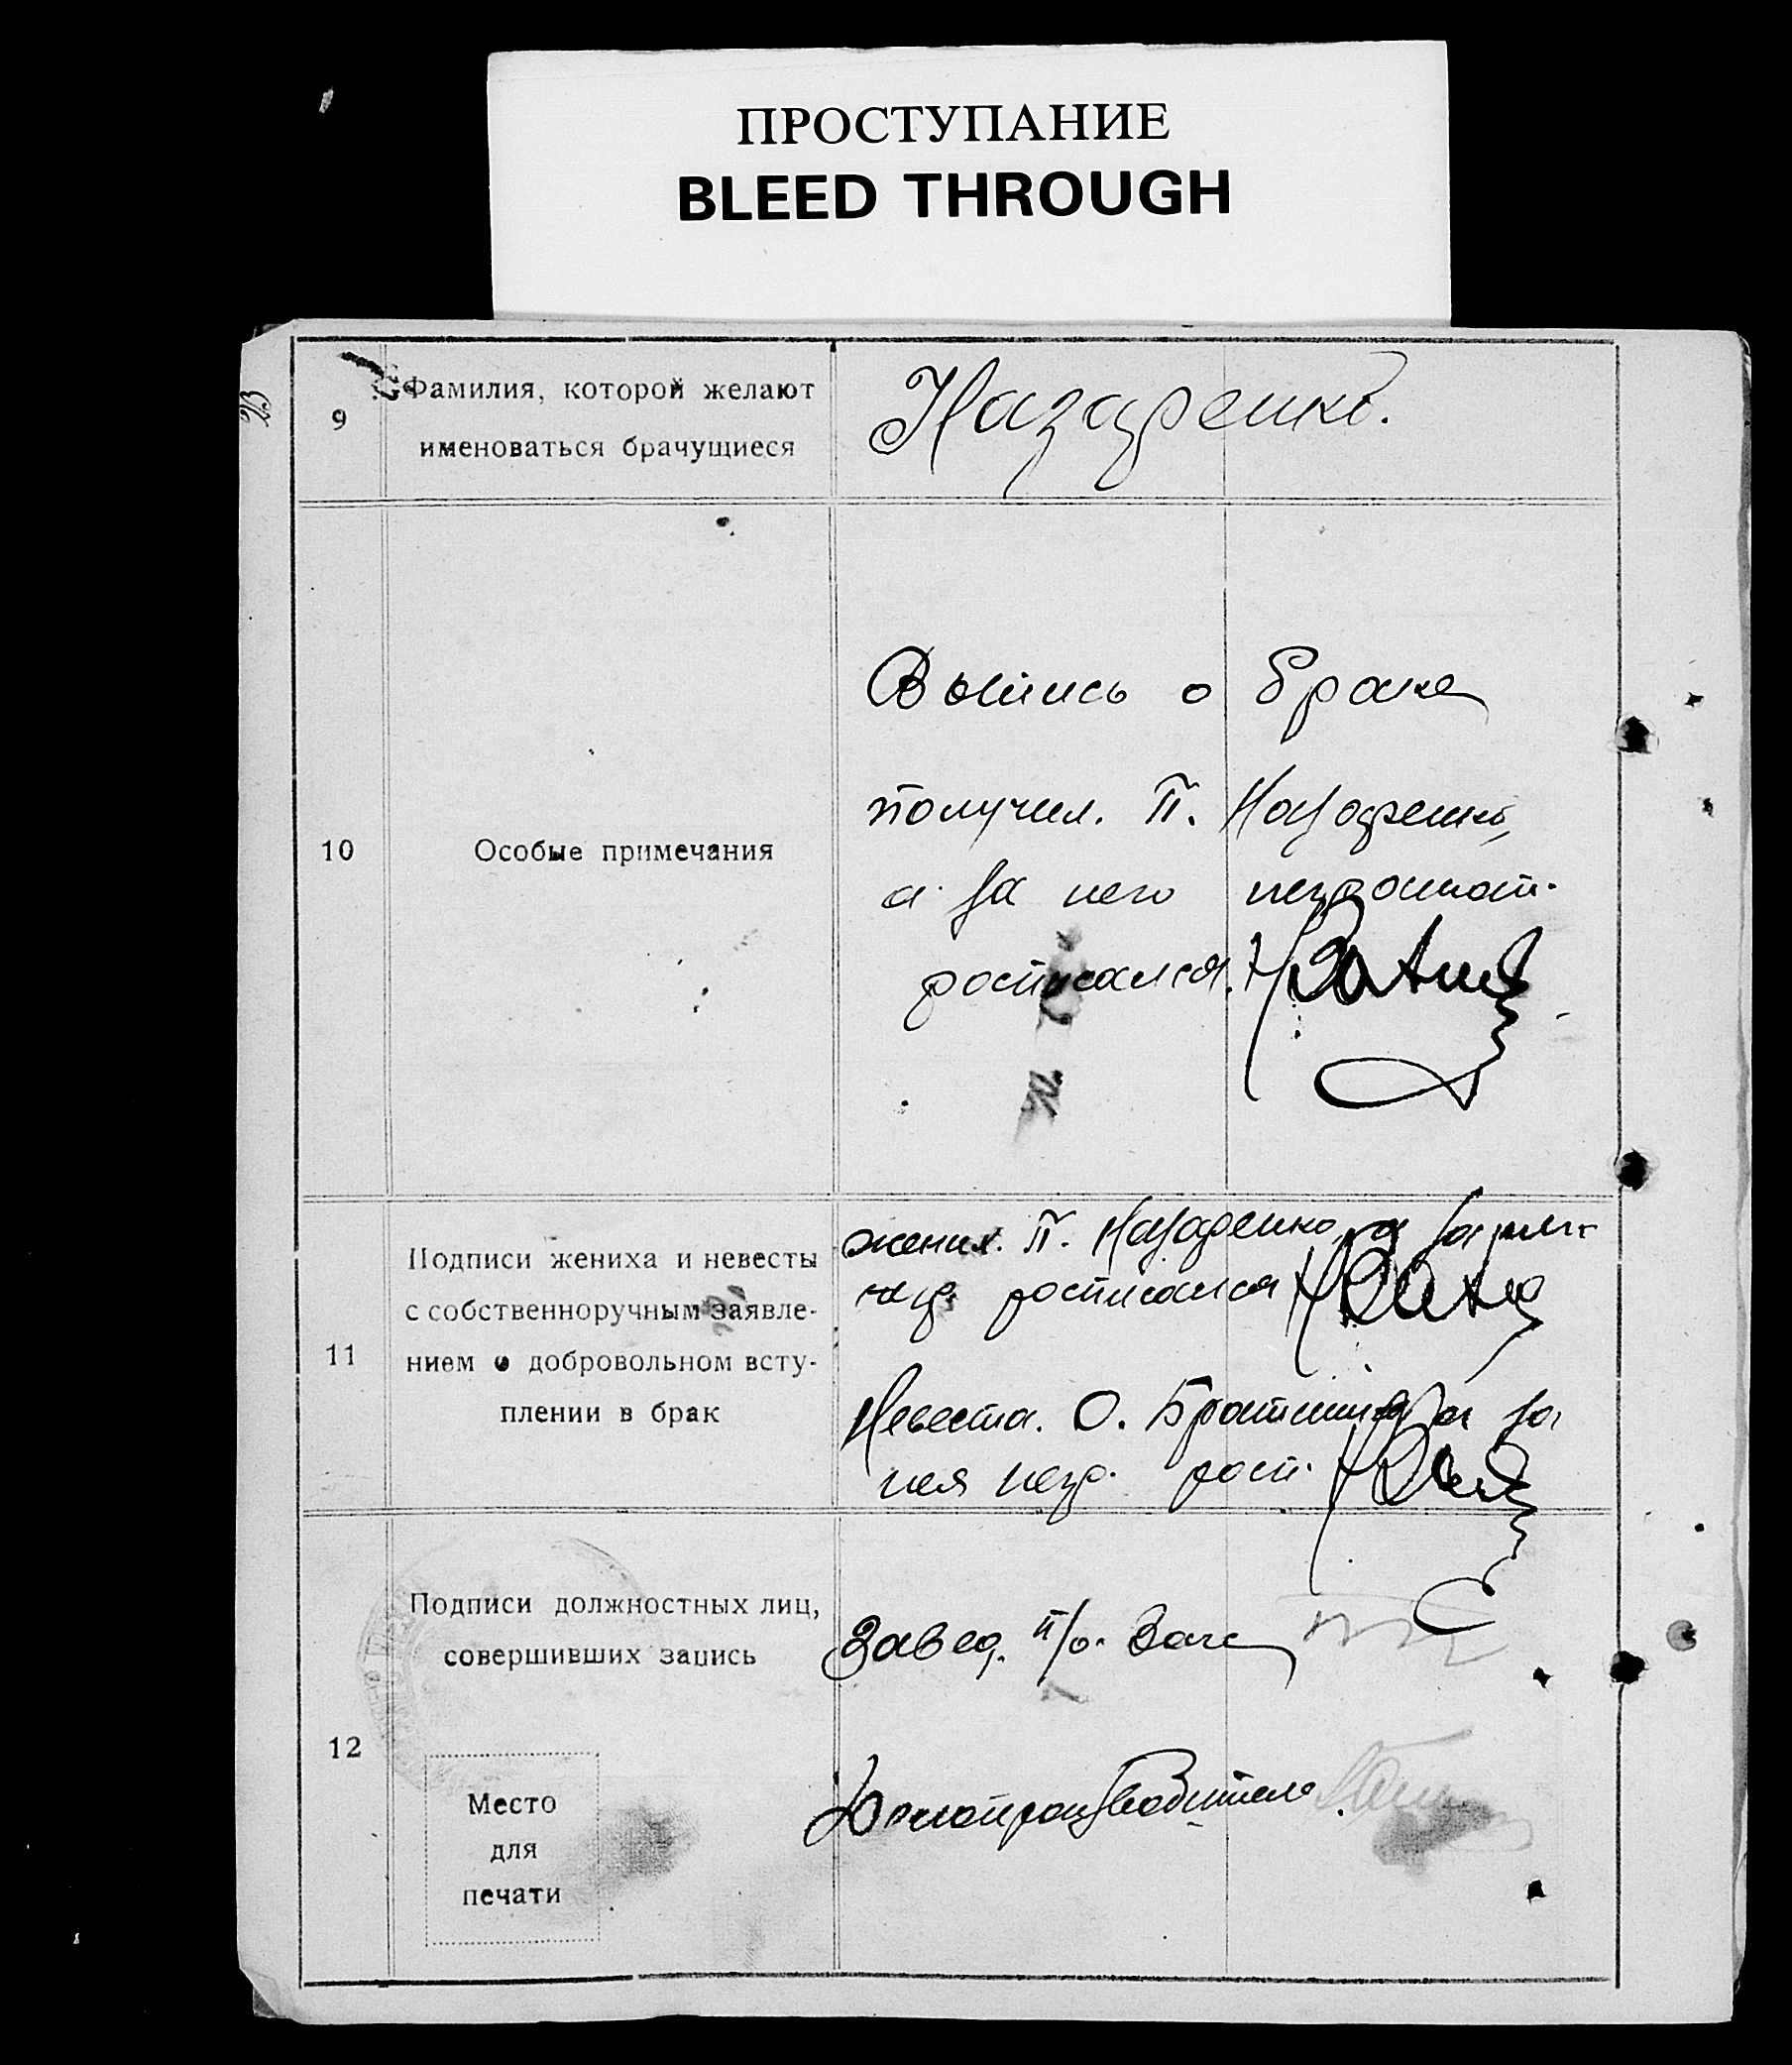 ПРОСТУПАНИЕ
BLEED THROUGH
9
Фамилия, которой желают
именоваться брачущиеся
Назаренко.
10
Особые примечания
Выпись о браке
получил. П. Назаренко,
а за него неграмот.
росписался.
11
Подписи жениха и невесты
с собственноручным заявле-
нием о добровольном всту-
плении в брак
жених. П. Назаренко, а за
росписался
Невеста. О. а за
нея негр. росп.
12
Подписи должностных лиц,
совершивших запись
Завед. п/о. Загс
Делопроизводитель
Место
для
печати